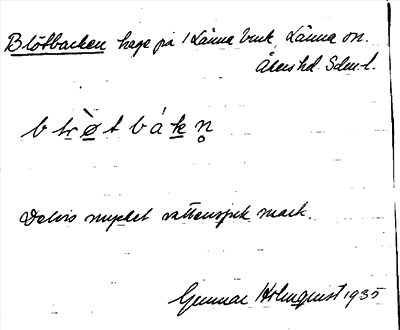 Blötbacken hage på 1 Länna bruk, Länna sn.
Åkers hd. Sdml.
b lø̀t bák n̥
Delvis mycket vattensjuk mark.
Gunnar Holmquist 1935